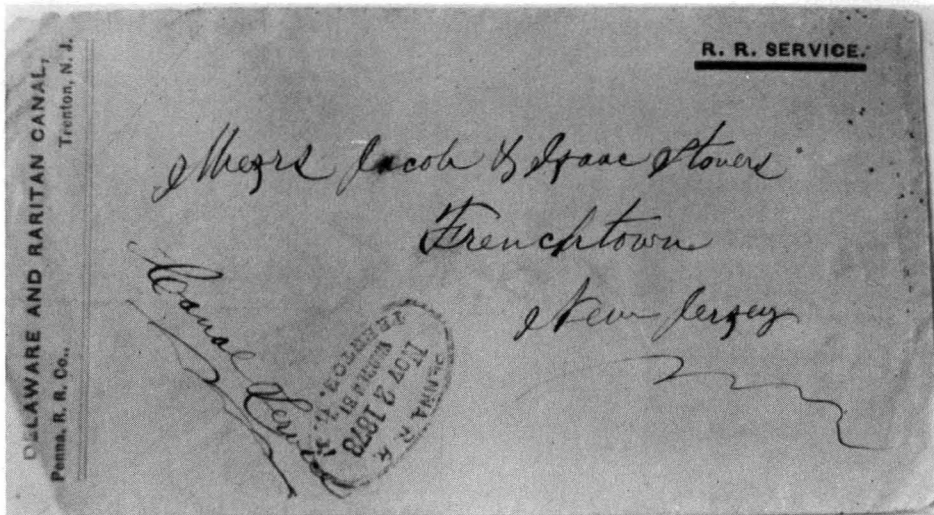 DELAWARE AND RARITAN CANAL,
Penna. R. R. Co., Trenton, N. J.
R. R. SERVICE.
Messrs Jacob & Isaac Stovers
Frenchtown
New Jersey
Canal Service
PENNA. R. R.
NOV 2 1873
TRENTON.